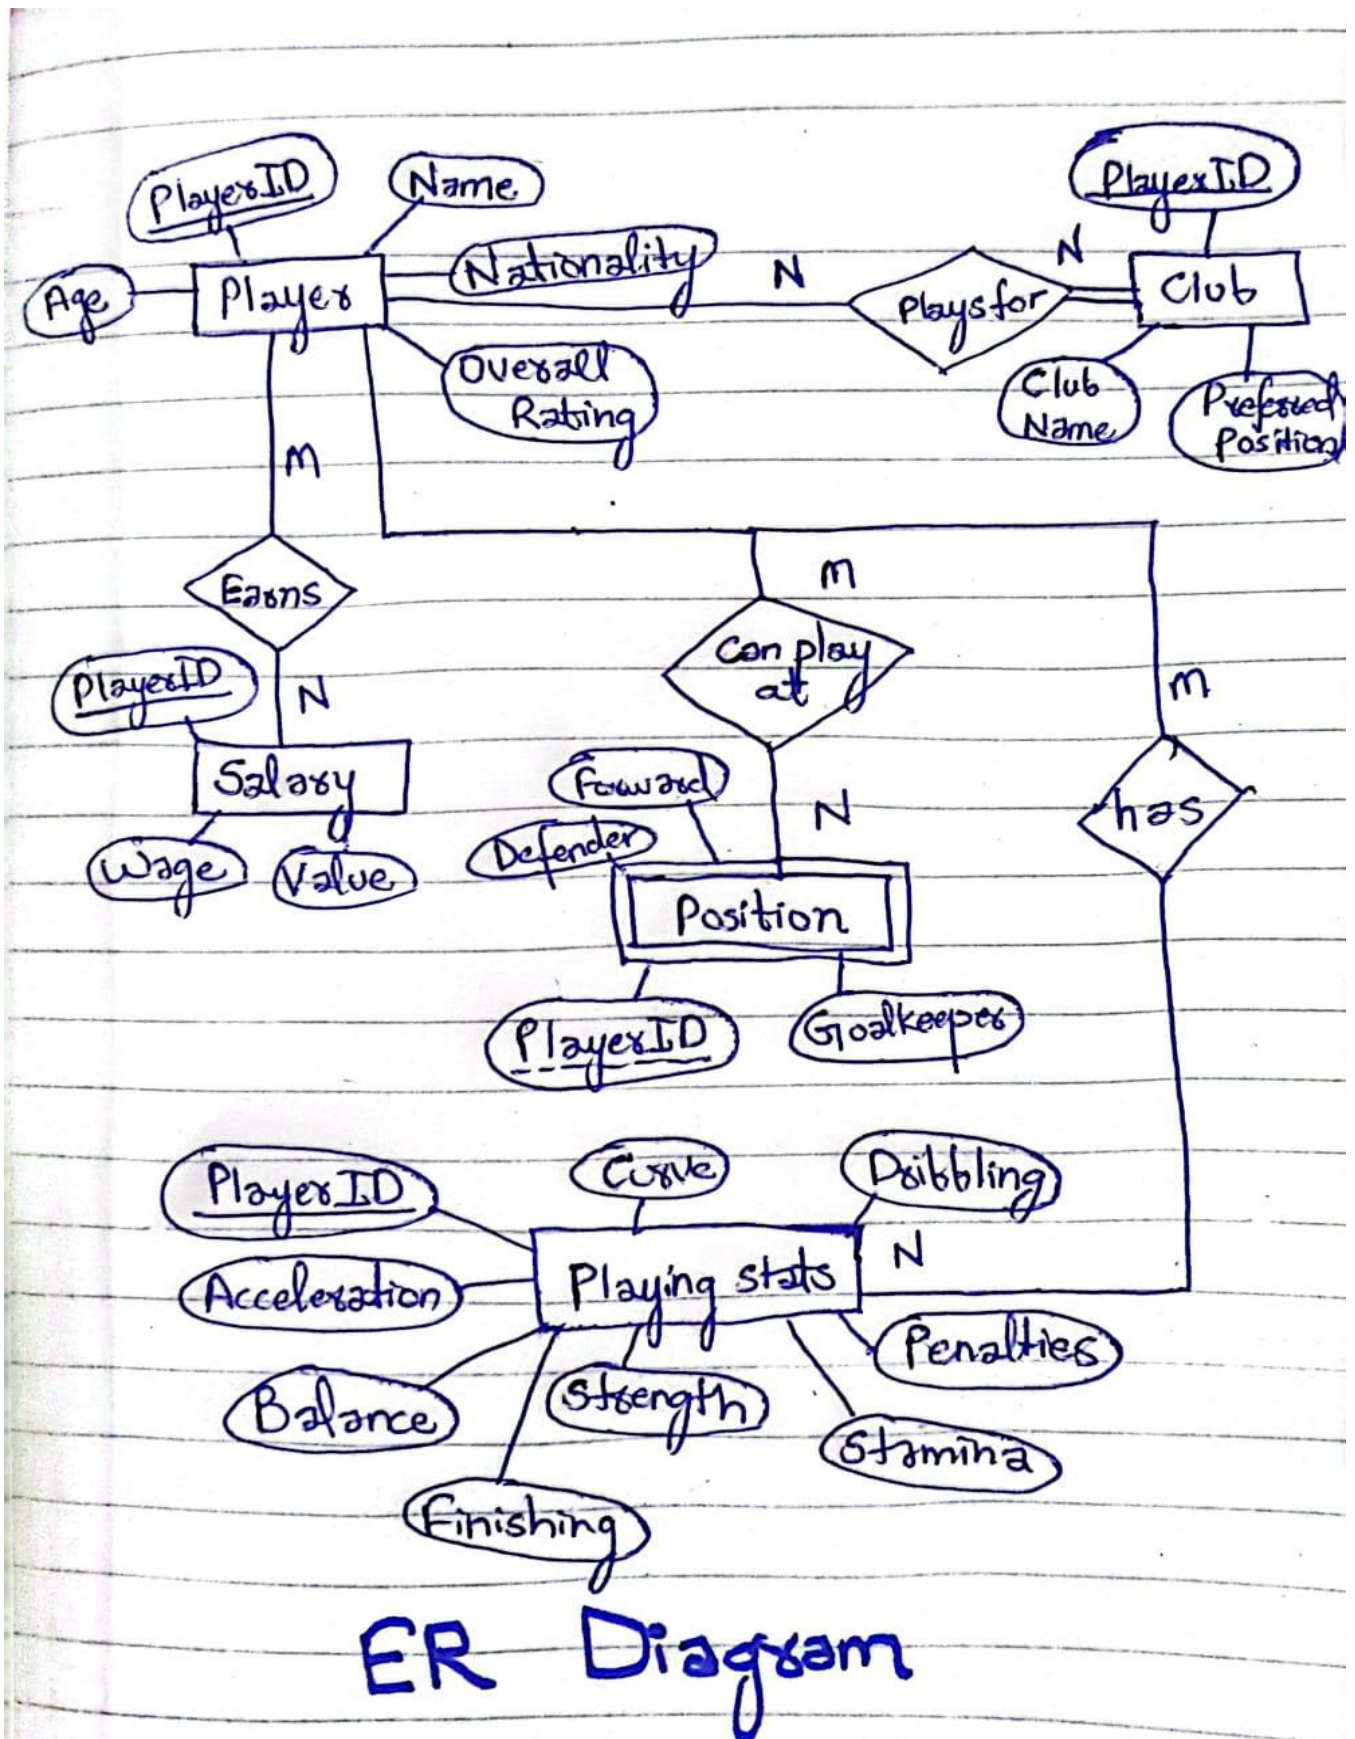 PlayerID
Name
PlayerID
Age
Player
Nationality
N
Plays for
N
Club
Overall
Rating
Club
Name
Preferred
Position
M
Earns
M
Can play
at
M
PlayerID
N
Salary
Forward
N
has
Defender
Wage
Value
Position
PlayerID
Goalkeeper
PlayerID
Curve
Dribbling
Acceleration
Playing stats
N
Balance
Strength
Penalties
Stamina
Finishing
ER Diagram